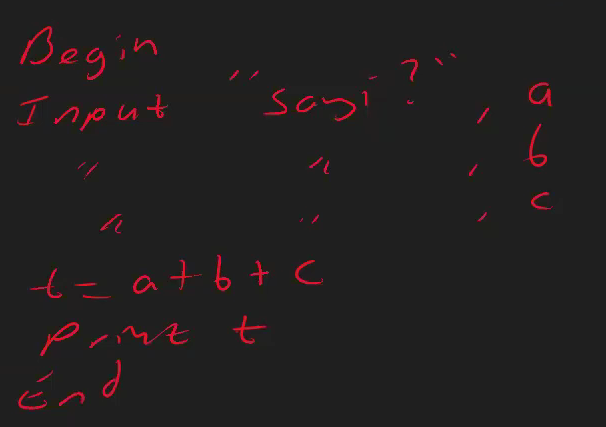 Begin
Input "sayi?", a
" " , b
" " , c
t = a + b + c
print t
End